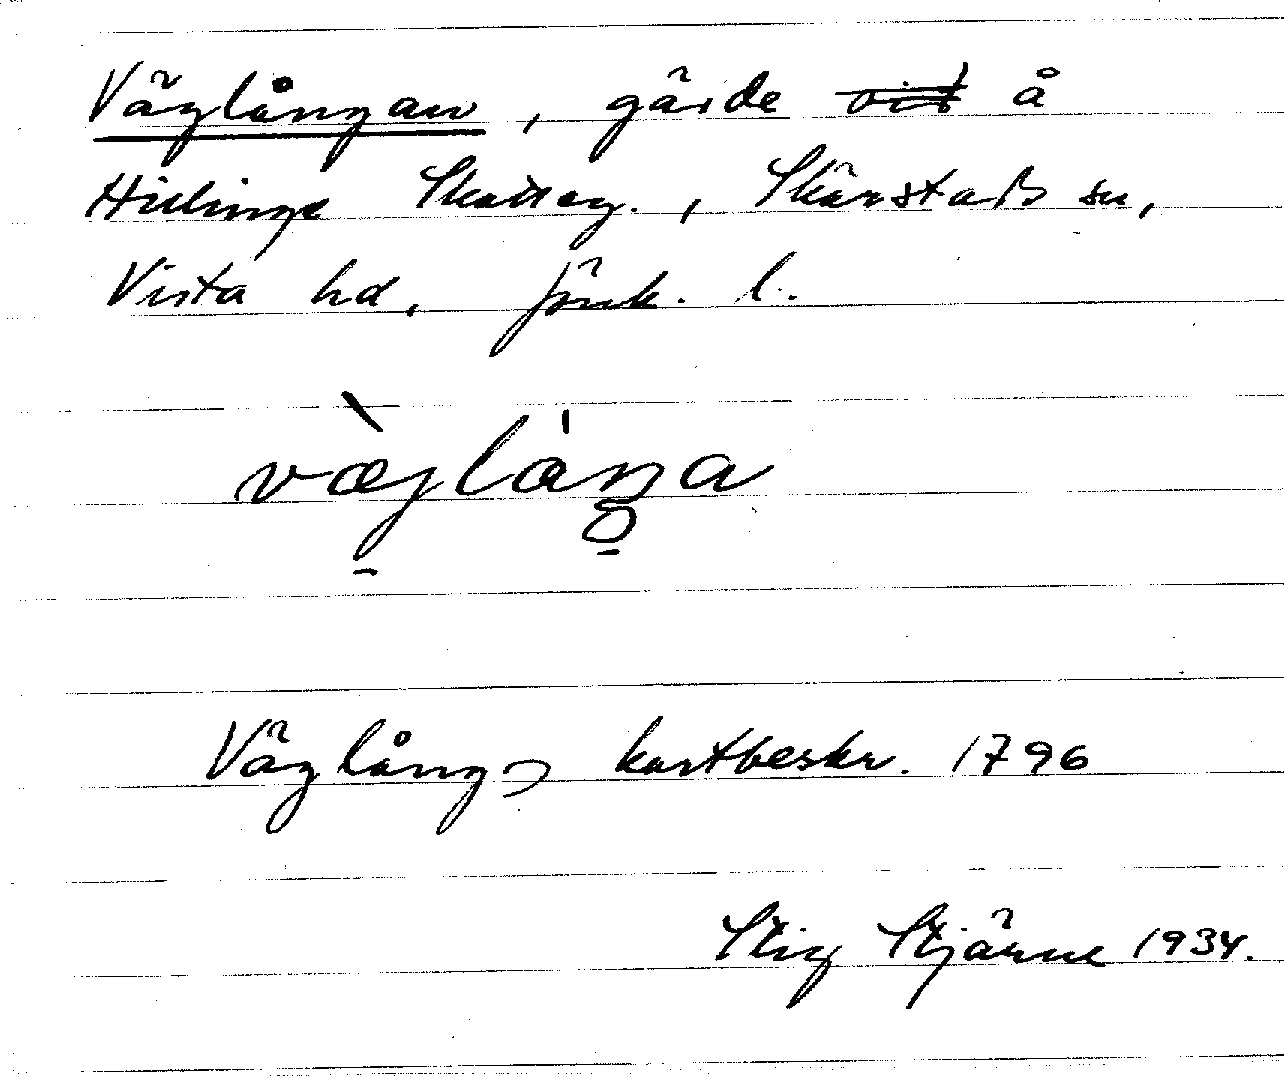 Väglångan, gärde ~~vid~~ å
Hullinge Skatteg., Skärstads sn,
Vista hd, Jönk. l.
væ̀glána
Väglång, kartbeskr. 1796
Stig Stjärne 1934.